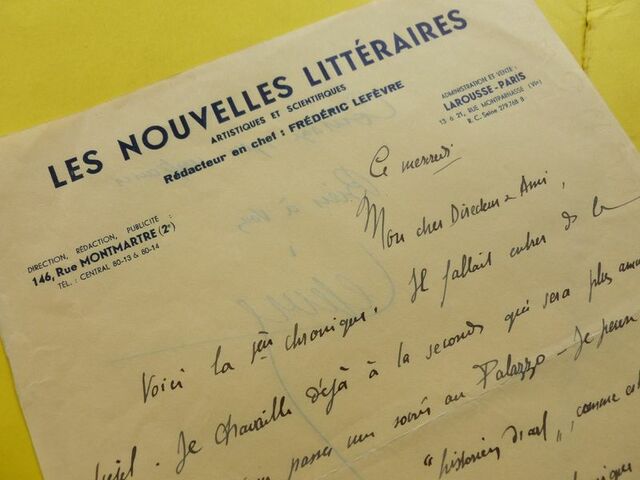 LES NOUVELLES LITTÉRAIRES
ARTISTIQUES ET SCIENTIFIQUES
Rédacteur en chef : FRÉDÉRIC LEFÈVRE
ADMINISTRATION ET VENTE :
LAROUSSE-PARIS
13 à 21, RUE MONTPARNASSE (VIe)
R. C. Seine 279.768 B
DIRECTION, RÉDACTION, PUBLICITÉ :
146, Rue MONTMARTRE (2e)
TÉL. : CENTRAL 80-13 & 80-14
Ce mercredi
Mon cher Directeur & Ami,
Voici la 1ère chronique. Il fallait entrer de la
sujet. Je travaille déjà à la seconde qui sera plus
passer une soirée au Palazzo - Je pense
"historien d'art", comme